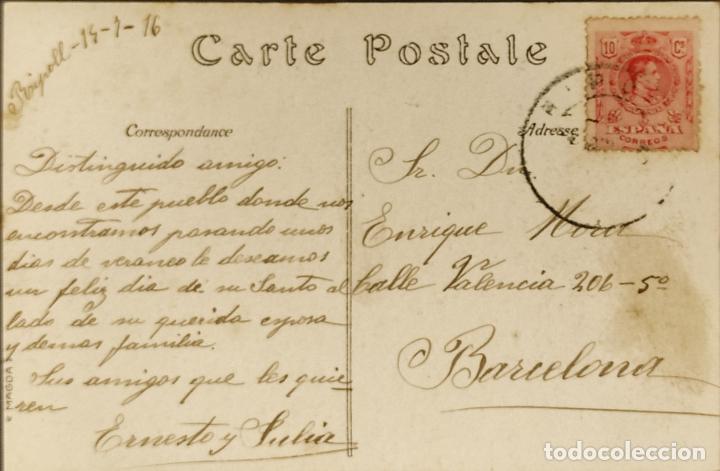 Ripoll-14-7-16
Carte Postale
10 Cs
ESPAÑA
CORREOS
Correspondance
Adresse
Distinguido amigo:
Desde este pueblo donde nos
encontramos pasando unos
dias de veraneo le deseamos
un feliz dia de su Santo al
lado de su querida esposa
y demas familia.
Sus amigos que les quie-
ren
Ernesto y Julia
Sr. Dn
Enrique Mora
Calle Valencia 206-5º
Barcelona
MAGDA
todocoleccion